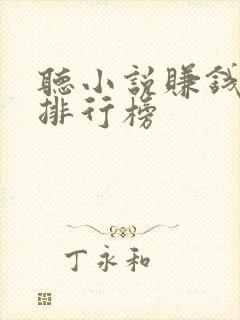 聽小説賺錢
排行榜
丁永和